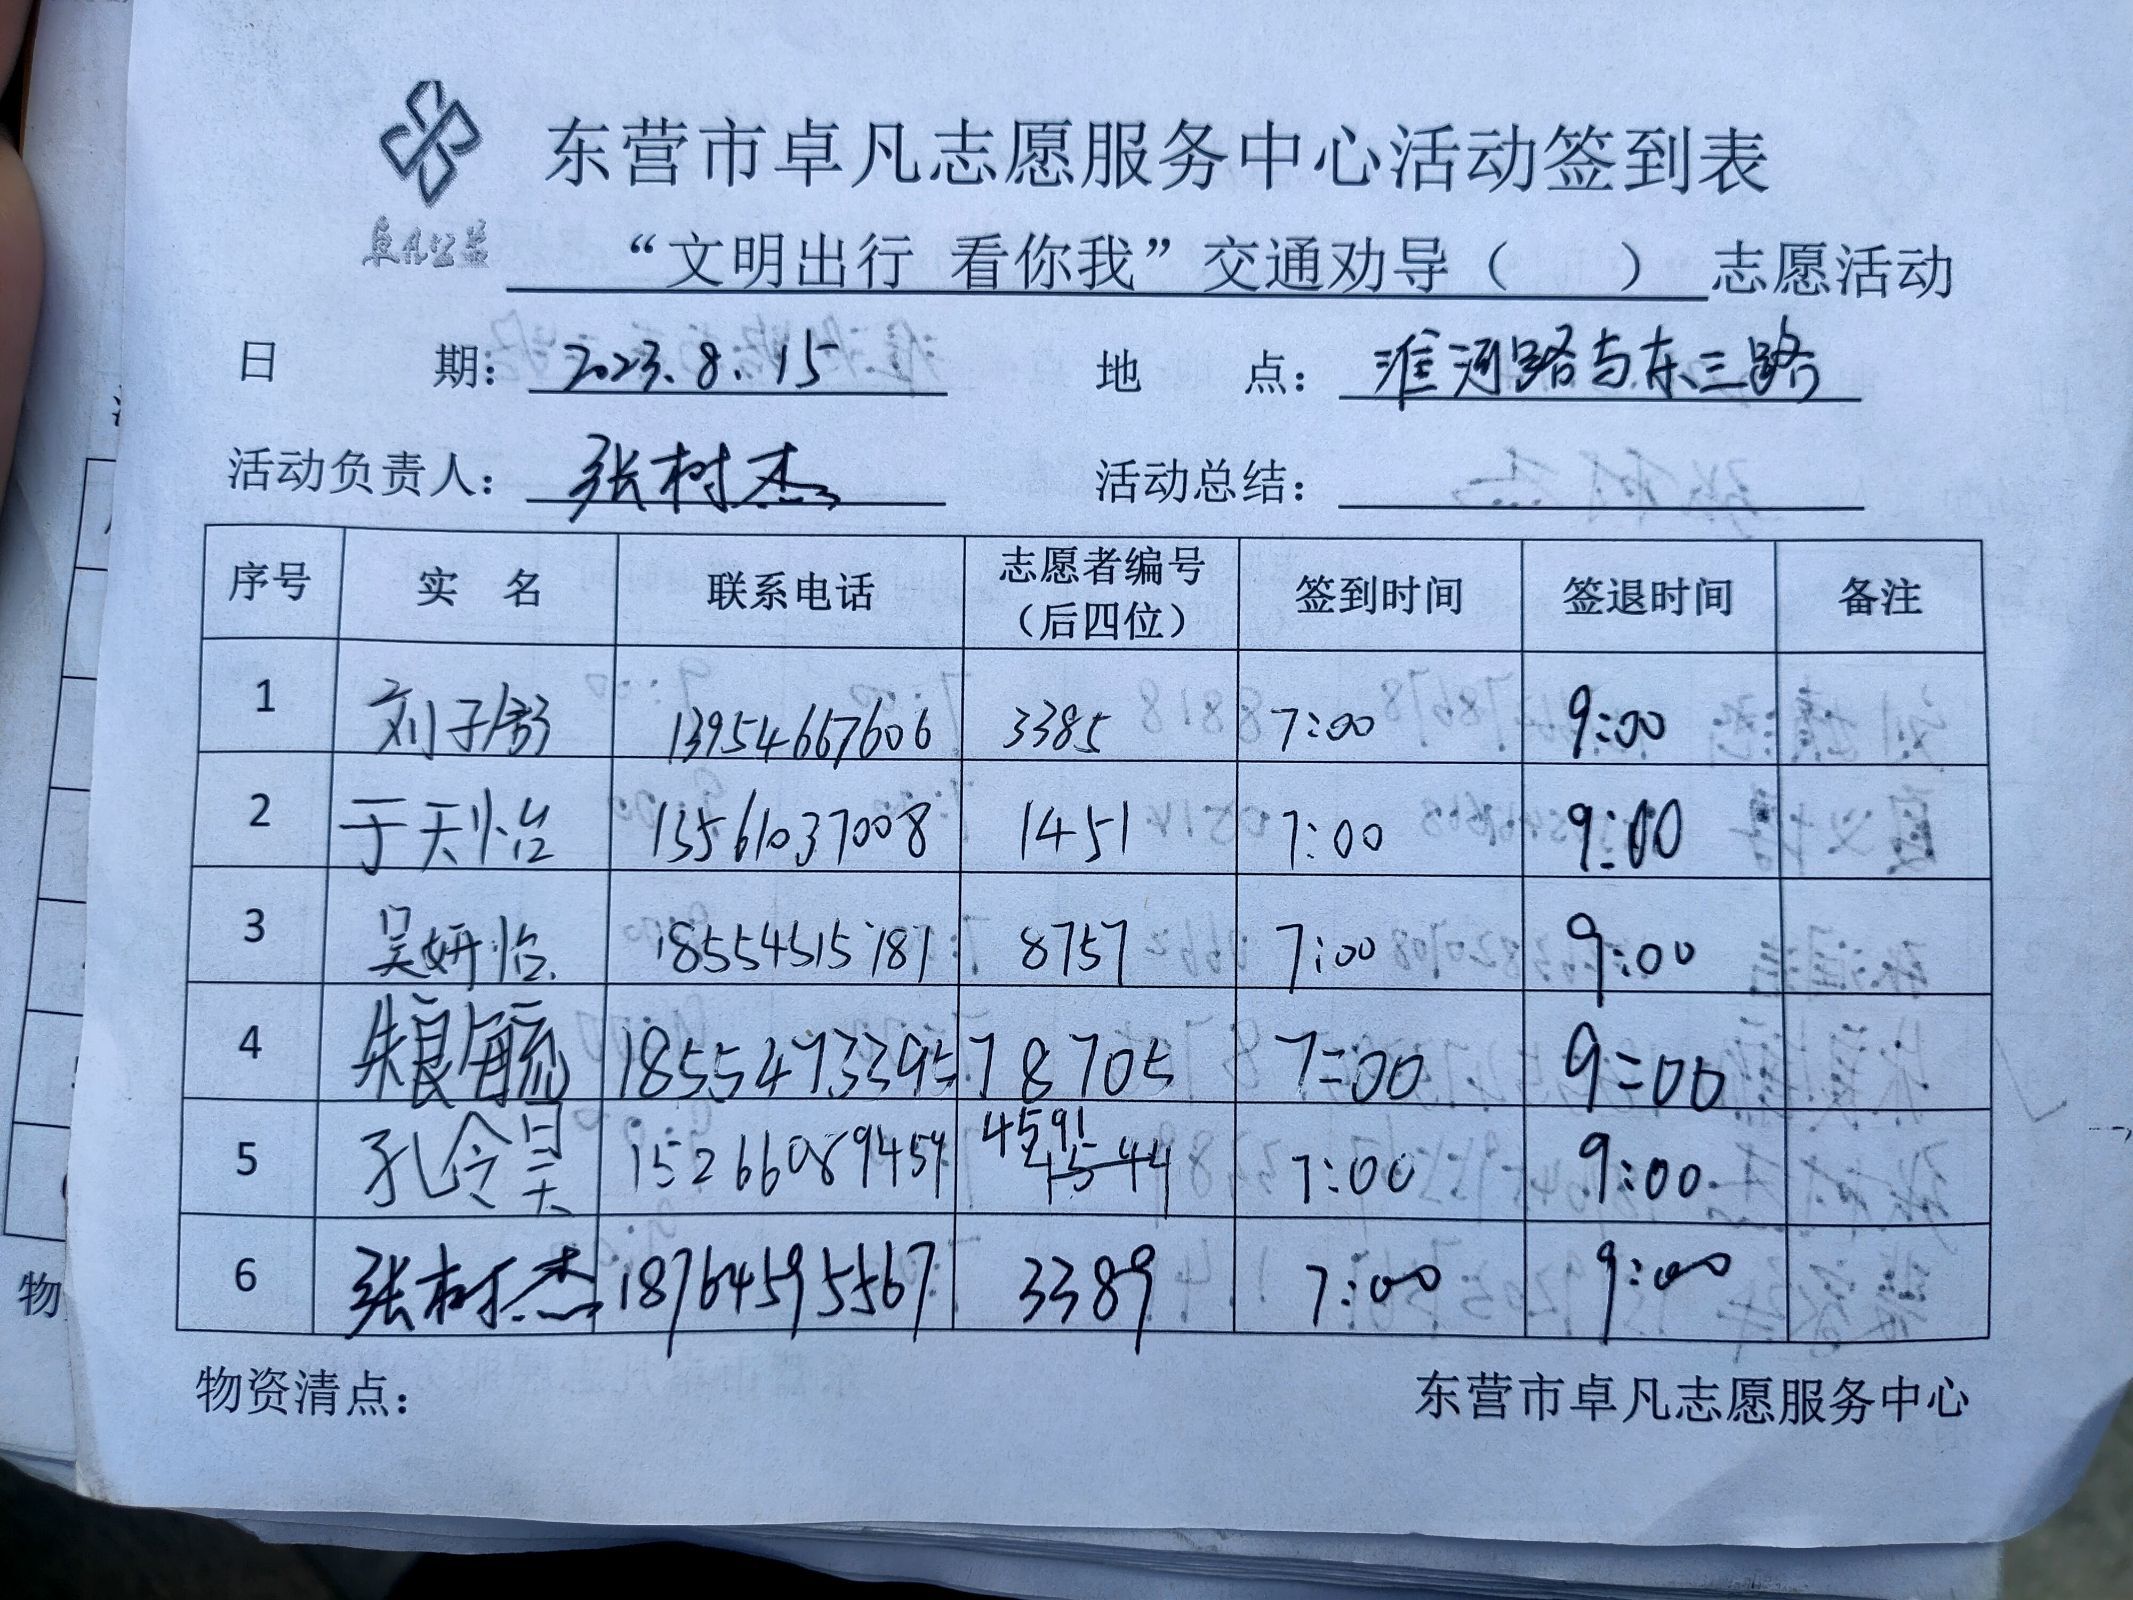 东营市卓凡志愿服务中心活动签到表
卓凡公益
“文明出行 看你我”交通劝导（ ） 志愿活动
日 期： 2023.8.15 地 点： 淮河路与东三路
活动负责人： 张树杰 活动总结：
序号 实 名 联系电话 志愿者编号（后四位） 签到时间 签退时间 备注
1 刘子舒 13954667606 3385 7:00 9:00
2 于天怡 13561037008 1451 7:00 9:00
3 吴妍怡 18554515181 8757 7:00 9:00
4 朱良毓 18554733957 8705 7:00 9:00
5 孔令昊 15266089459 4591 7:00 9:00
6 张树杰 18764595567 3389 7:00 9:00
物资清点： 东营市卓凡志愿服务中心
物